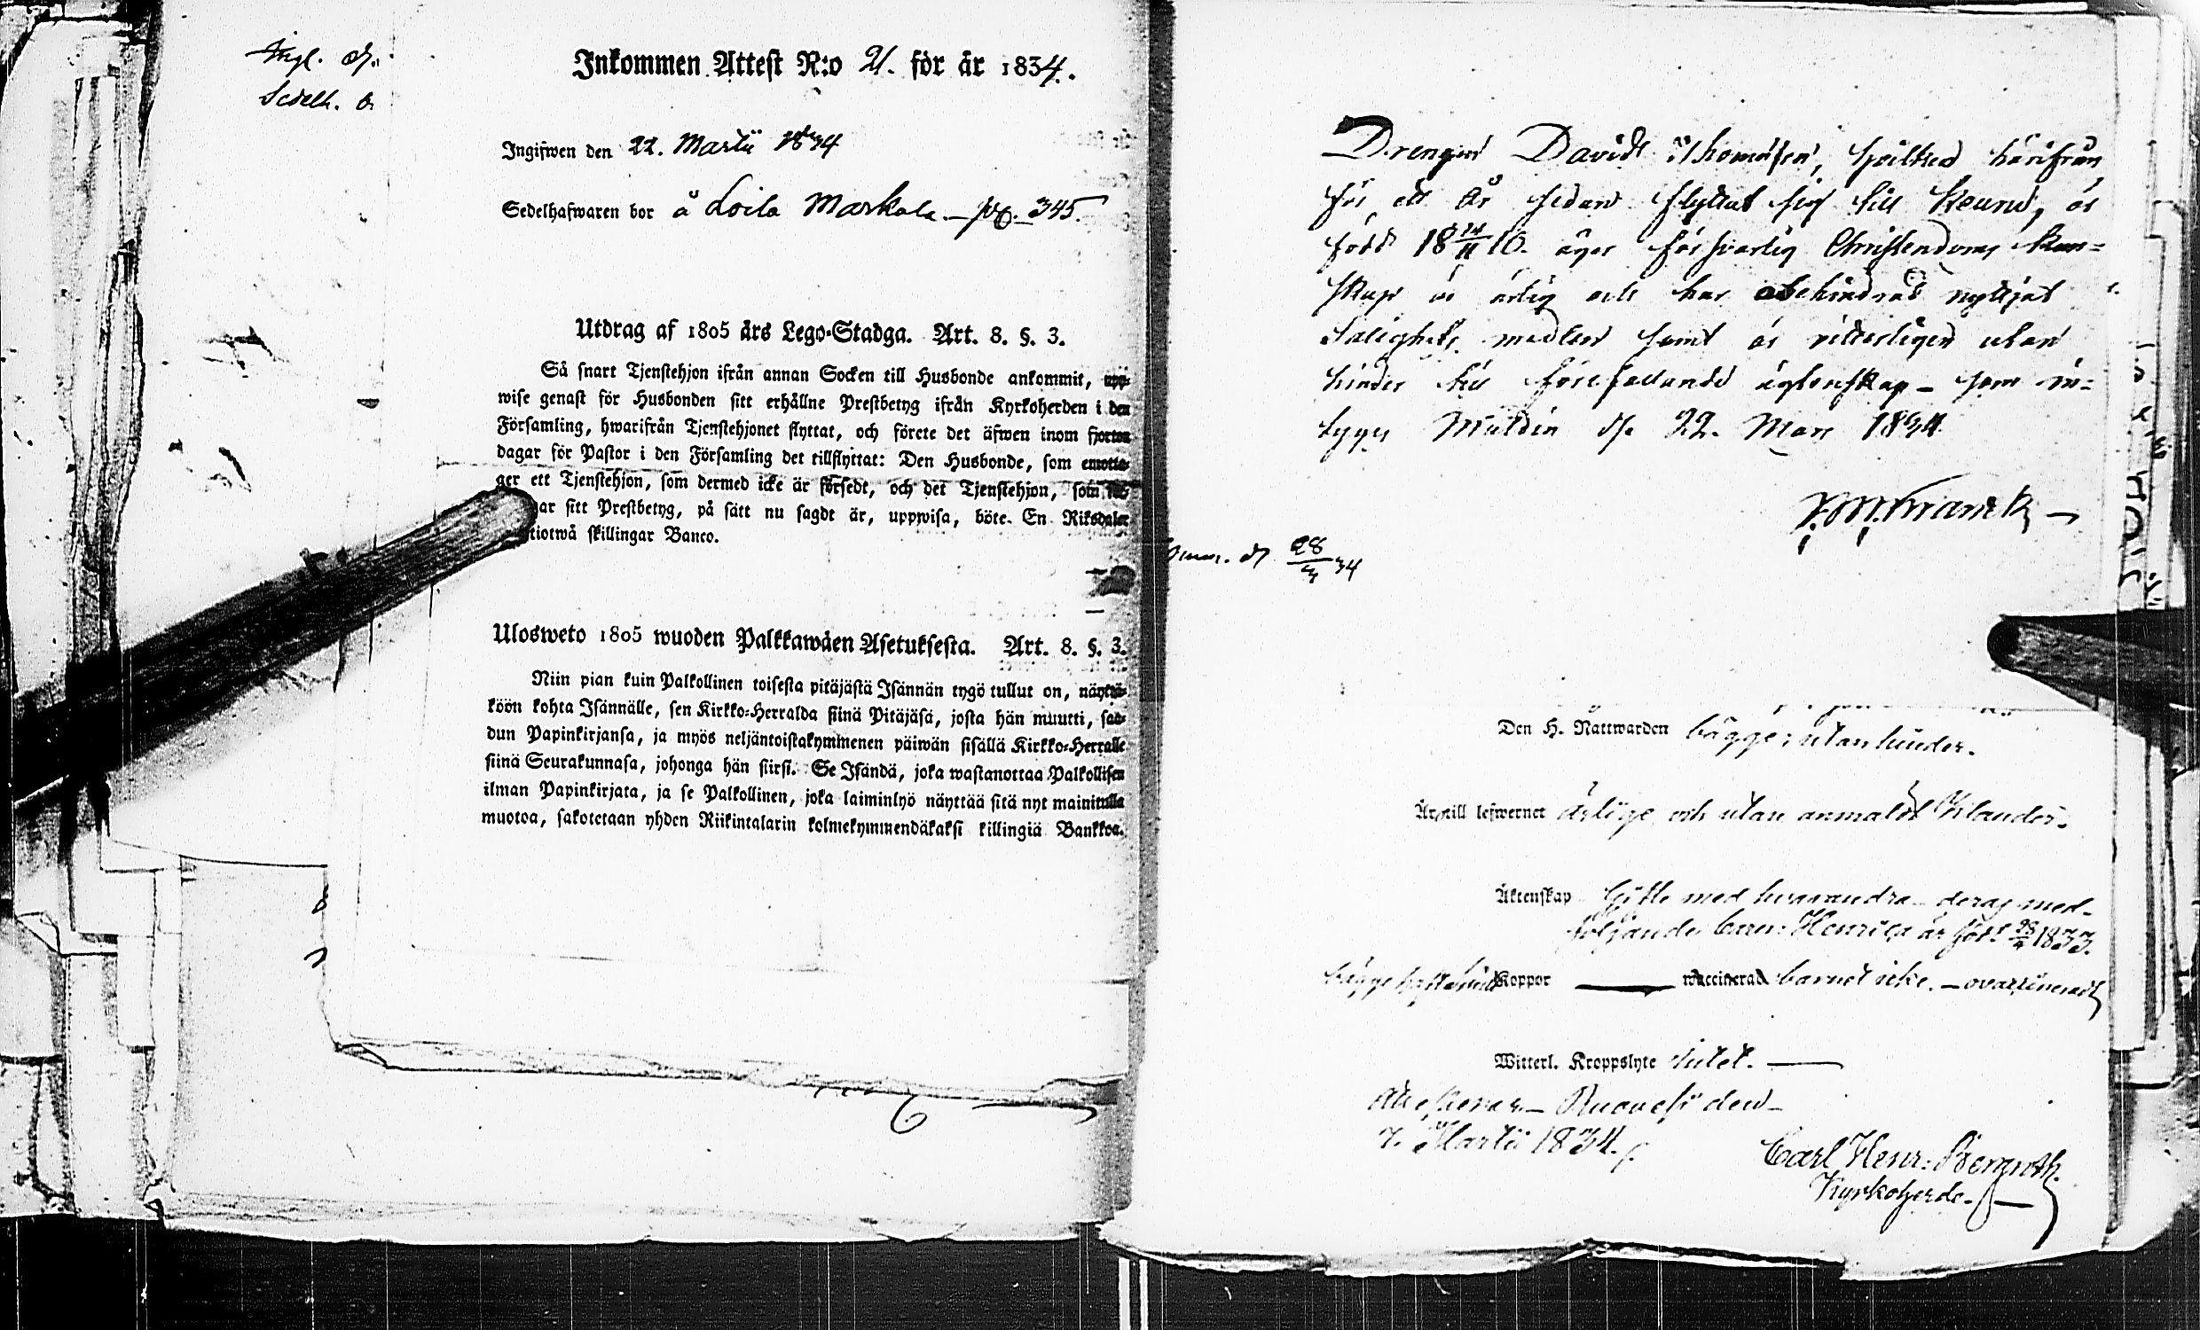 Ingl. d.
Sedelh. b.
Inkommen Attest N:o 21. för år 1834.
Ingifwen den 22. Martii 1834
Sedelhafwaren bor å Loila Markola — pag. 345
Utdrag af 1805 års Lego-Stadga. Art. 8. §. 3.
Så snart Tjenstehjon ifrån annan Socken till Husbonde ankommit, upp-
wise genast för Husbonden sitt erhållne Prestbetyg ifrån Kyrkoherden i den
Församling, hwarifrån Tjenstehjonet flyttat, och förete det äfwen inom fjorton
dagar för Pastor i den Församling det tillflyttat: Den Husbonde, som emotta-
ger ett Tjenstehjon, som dermed icke är försedt, och det Tjenstehjon, som
sitt Prestbetyg, på sätt nu sagdt är, uppwisa, böte En Riksdaler
tiotwå skillingar Banco.
Ulosweto 1805 wuoden Palkkawäen Asetuksesta. Art. 8. §. 3.
Niin pian kuin Palkollinen toisesta pitäjästä Isännän tygö tullut on, näyttä-
köön kohta Isännälle, sen Kirkko-Herralda siinä Pitäjäsä, josta hän muutti, saa-
dun Papinkirjansa, ja myös neljäntoistakymmenen päiwän sisällä Kirkko-Herralle
siinä Seurakunnasa, johonga hän siirsi. Se Isändä, joka wastanottaa Palkollisen
ilman Papinkirjata, ja se Palkollinen, joka laiminlyö näyttää sitä nyt mainitulla
muotoa, sakotetaan yhden Riikintalarin kolmekymmendäkaksi killingiä Bankkoa.
Drengen David Thomasson, hvilken härifrån
för ett år sedan flyttat sig till Keuru, är
född 18 24/11 10. äger försvarlig Christendoms kun-
skap är ärlig och har obehindrad nyttjat
Salighets medlen samt är vitterligen utan
hinder till förefallande ägtenskap — som in-
tygas Muldia d. 22. Mars 1834
28/3 34
Den H. Nattwarden bägge; utan hinder.
Är till lefwernet ärlige och utan anmäldt klander.
Äktenskap Gifte med hwarandra deras med-
följande barn: Henrica är född 28/4 1833.
bägge haft Koppor — waccinerad barnet icke. — ovaccineradt
Witterl. Kroppslyte intet. —
Attesterar — Ruovesi den
7. Martii 1834.
Carl Henr: Bergroth.
Kyrkoherde.